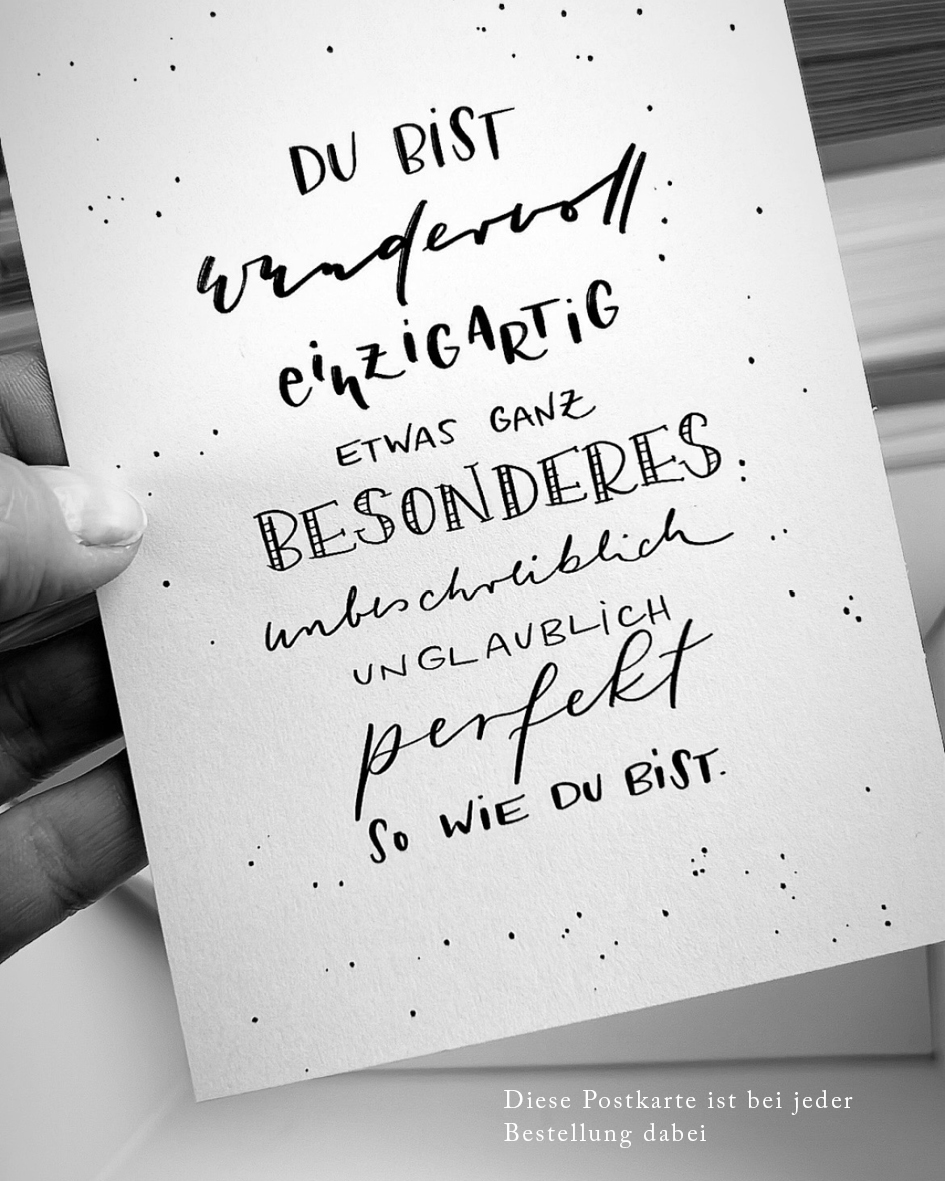 DU BiST
wundervoll
einziGARTiG
ETWAS GANZ
BESONDERES
unbeschreiblich
UNGLAUBLiCH
perfekt
SO WiE DU BiST.
Diese Postkarte ist bei jeder
Bestellung dabei